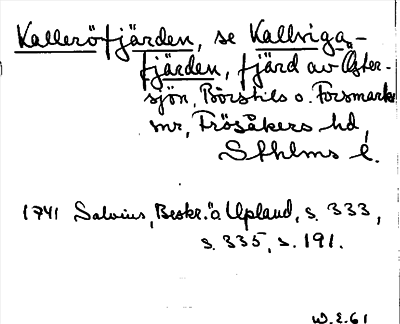 Kalleröfjärden, se Kallviga-
fjärden, fjärd av Öster-
sjön, Börstils o. Forsmarks
snr, Frösåkers hd,
Sthlms l.
1741 Salvius, Beskr. ö. Upland, s. 333,
s. 335, s. 191.
W.E.61